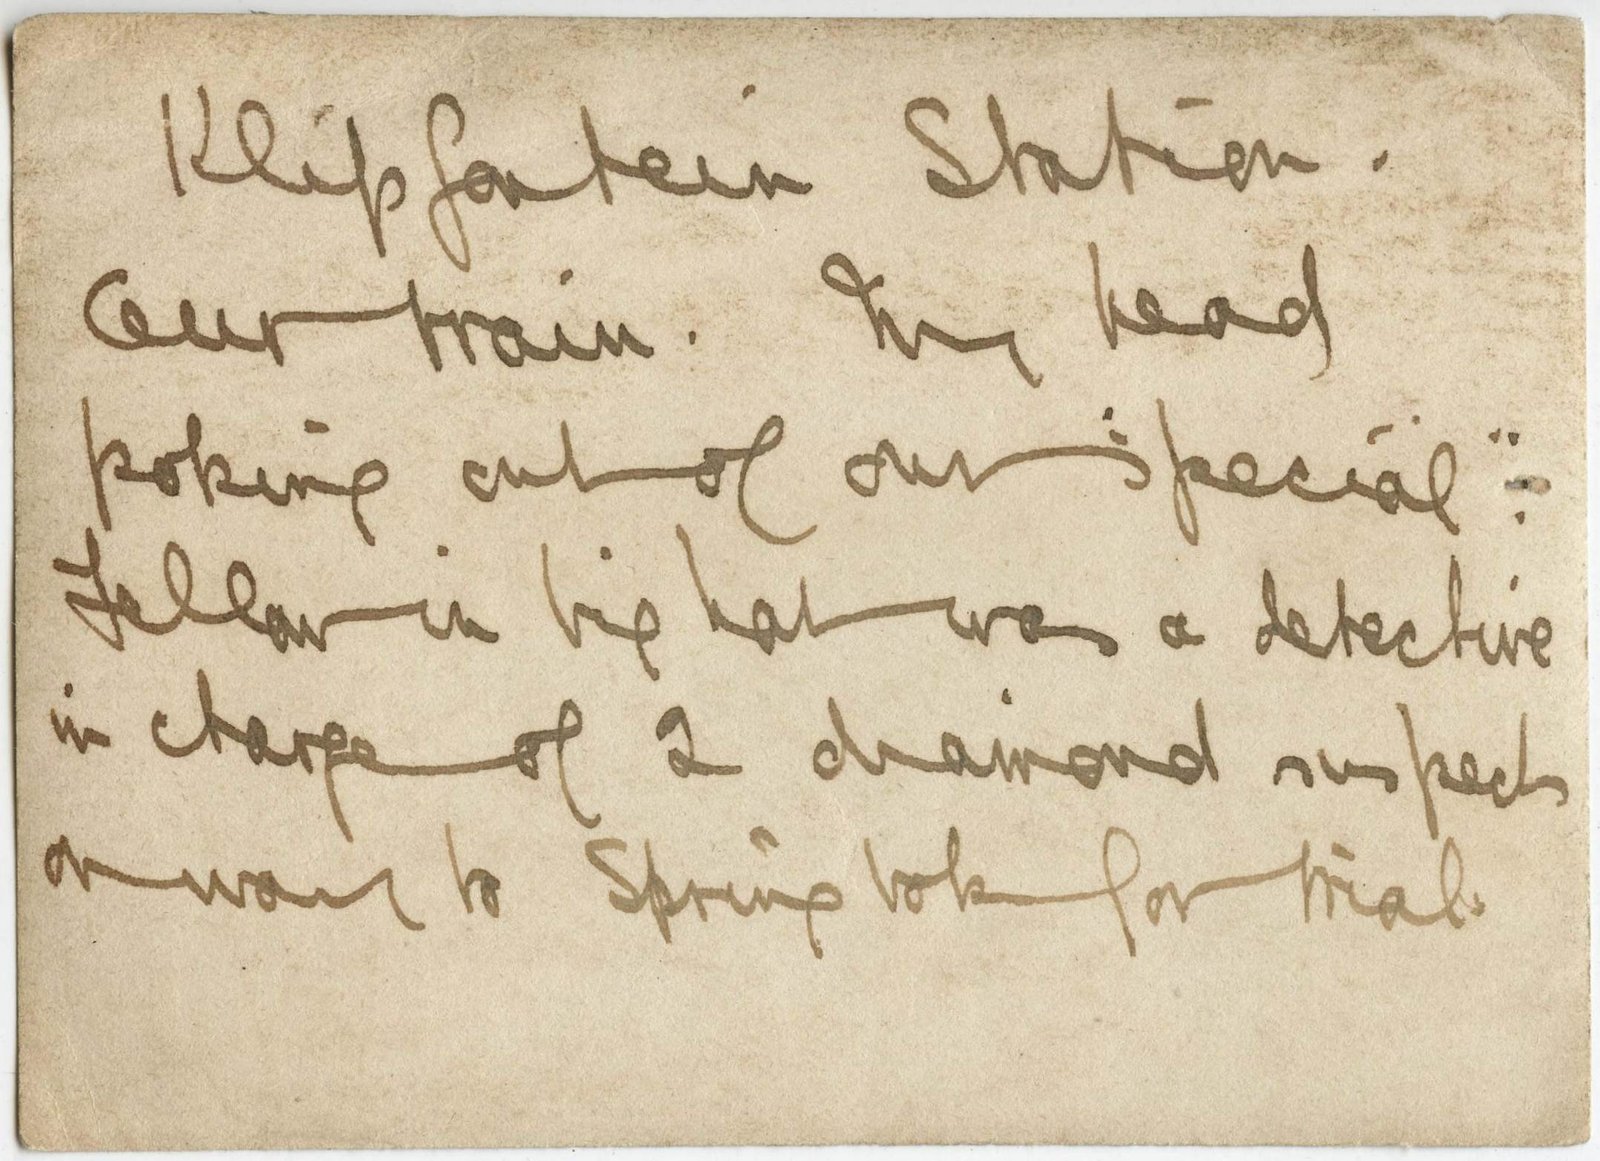 Klipfontein Station.
Our train. My head
poking out of our "special".
Fellow in big hat was a detective
in charge of 2 diamond suspects
on way to Springbok for trial.